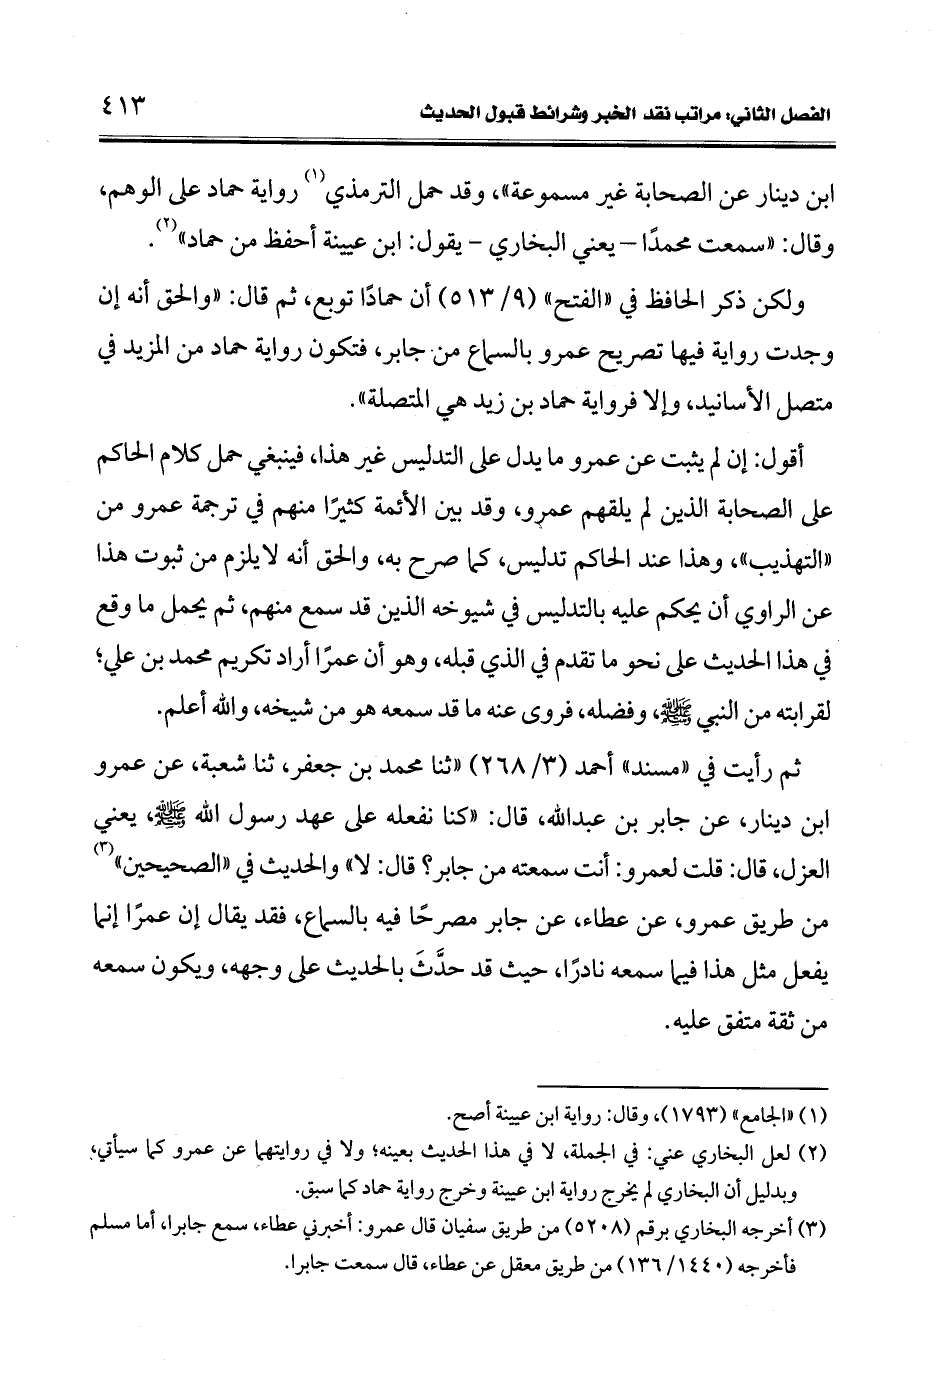 الفصل الثاني: مراتب نقد الخبر وشرائط قبول الحديث ٤١٣
ابن دينار عن الصحابة غير مسموعة»، وقد حمل الترمذي(١) رواية حماد على الوهم،
وقال: «سمعت محمدًا – يعني البخاري – يقول: ابن عيينة أحفظ من حماد»(٢).
ولكن ذكر الحافظ في «الفتح» (٩/ ٥١٣) أن حمادًا توبع، ثم قال: «والحق أنه إن
وجدت رواية فيها تصريح عمرو بالسماع من جابر، فتكون رواية حماد من المزيد في
متصل الأسانيد، وإلا فرواية حماد بن زيد هي المتصلة».
أقول: إن لم يثبت عن عمرو ما يدل على التدليس غير هذا، فينبغي حمل كلام الحاكم
على الصحابة الذين لم يلقهم عمرو، وقد بين الأئمة كثيرًا منهم في ترجمة عمرو من
«التهذيب»، وهذا عند الحاكم تدليس، كما صرح به، والحق أنه لا يلزم من ثبوت هذا
عن الراوي أن يحكم عليه بالتدليس في شيوخه الذين قد سمع منهم، ثم يحمل ما وقع
في هذا الحديث على نحو ما تقدم في الذي قبله، وهو أن عمرًا أراد تكريم محمد بن علي؛
لقرابته من النبي ﷺ، وفضله، فروى عنه ما قد سمعه هو من شيخه، والله أعلم.
ثم رأيت في «مسند» أحمد (٣/ ٢٦٨) «ثنا محمد بن جعفر، ثنا شعبة، عن عمرو
ابن دينار، عن جابر بن عبدالله، قال: «كنا نفعله على عهد رسول الله ﷺ، يعني
العزل، قال: قلت لعمرو: أنت سمعته من جابر؟ قال: لا» والحديث في «الصحيحين»(٣)
من طريق عمرو، عن عطاء، عن جابر مصرحًا فيه بالسماع، فقد يقال إن عمرًا إنما
يفعل مثل هذا فيما سمعه نادرًا، حيث قد حدَّثَ بالحديث على وجهه، ويكون سمعه
من ثقة متفق عليه.
(١) «الجامع» (١٧٩٣)، وقال: رواية ابن عيينة أصح.
(٢) لعل البخاري عني: في الجملة، لا في هذا الحديث بعينه؛ ولا في روايتهما عن عمرو كما سيأتي؛
وبدليل أن البخاري لم يخرج رواية ابن عيينة وخرج رواية حماد كما سبق.
(٣) أخرجه البخاري برقم (٥٢٠٨) من طريق سفيان قال عمرو: أخبرني عطاء، سمع جابرا، أما مسلم
فأخرجه (١٤٤٠/ ١٣٦) من طريق معقل عن عطاء، قال سمعت جابرا.